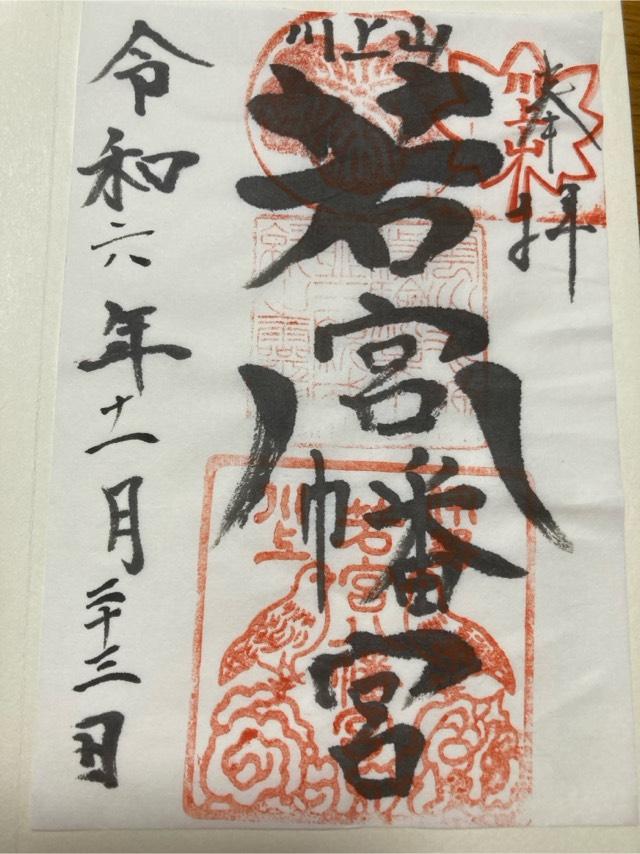 奉拝
川上山
川上山
若宮八幡宮
川上
若宮八幡宮
令和六年十一月二十三日